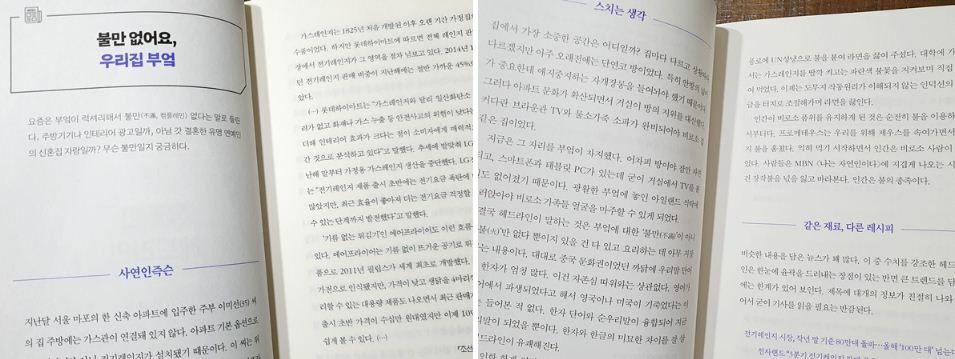 불만 없어요,
우리집 부엌
요즘은 부엌이 럭셔리해서 불만(不滿, 컴플레인) 없다는 말로 들린
다. 주방기기나 인테리어 광고일까, 아님 갓 결혼한 유명 연예인
의 신혼집 자랑일까? 무슨 불만일지 궁금하다.
사연인즉슨
지난달 서울 마포의 한 신축 아파트에 입주한 주부 이미선(35) 씨
의 집 주방에는 가스관이 연결돼 있지 않다. 아파트 기본 옵션으로
전기레인지가 설치됐기 때문이다. 이 씨는 뒤
가스레인지는 1825년 처음 개발된 이후 오랜 기간 가정집의
수품이었다. 하지만 롯데하이마트에 따르면 전체 레인지 판
장에서 전기레인지가 그 영역을 점차 넘보고 있다. 2014년 1
던 전기레인지 판매 비중이 지난해에는 절반 가까운 45%
았다.
(…) 롯데하이마트는 "가스레인지와 달리 일산화탄소
리가 없고 화재나 가스 누출 등 안전사고의 위험이 낮다는
더해 인테리어 효과가 크다는 점이 소비자에게 매력적
간 것으로 분석하고 있다"고 말했다. 추세에 발맞춰 LG
난해 말부터 가정용 가스레인지 생산을 중단했다. LG
는 "전기레인지 제품 출시 초반에는 전기요금 폭탄에
많았지만, 최근 효율이 좋아져 더는 전기요금 걱정할
수 있는 단계까지 발전했다"고 말했다.
'기름 없는 튀김기'인 에어프라이어도 이런 흐름
있다. 에어프라이어는 기름 없이 뜨거운 공기로 튀
품으로 2011년 필립스가 세계 최초로 개발했다.
가전으로 인식됐지만, 가격이 낮고 생닭을 4마리
리할 수 있는 대용량 제품도 나오면서 최근 판매
출시 초반 가격이 수십만 원대였지만 이제 10
쉽게 볼 수 있다. (…)
『조선
스치는 생각
집에서 가장 소중한 공간은 어디일까? 집마다 다르고
다르겠지만 아주 오래전에는 단연코 방이었다. 특히 안방의
가 중요한데 애지중지하는 자개장롱을 들여놔야 했기 때문이
그러다 아파트 문화가 확산되면서 거실이 방의 지위를 대신했다.
커다란 브라운관 TV와 물소가죽 소파가 완비되어야 비로소
같은 집이었다.
지금은 그 자리를 부엌이 차지했다. 어차피 방이야 잠만 자면
되고, 스마트폰과 태블릿 PC가 있는데 굳이 거실에서 TV를 볼
도 없어졌기 때문이다. 광활한 부엌에 놓인 아일랜드 식탁에
앉아야 비로소 가족들 얼굴을 마주할 수 있게 되었다.
결국 헤드라인이 말하는 것은 부엌에 대한 '불만(不滿)'이 아니
불(火)'만 없다 뿐이지 있을 건 다 있고 요리하는 데 아무 지장
는 내용이다. 대대로 중국 문화권이었던 까닭에 우리말 단어
한자가 엄청 많다. 이건 자존심 따위와는 상관없다. 영어가
어에서 파생되었다고 해서 영국이나 미국이 기죽었다는 이
들어본 적 없다. 한자 단어와 순우리말이 융합되어 지금
리말이 되었을 뿐이다. 한자와 한글의 미묘한 차이를 잘 살
드라인이 유쾌해진다.
풍로에 UN성냥으로 불을 붙여 라면을 끓여 주셨다. 대학에 가
서는 가스레인지를 딸깍 키고는 파란색 불꽃을 지켜보며 직접
여 먹었다. 이제는 도무지 작동원리가 이해되지 않는 인덕션의
금을 터치로 조절해가며 라면을 끓인다.
인간이 비로소 품위를 유지하게 된 것은 순전히 불을 이용하
서부터다. 프로메테우스는 우리를 위해 제우스를 속이가면서
지 불을 훔쳤다. 익혀 먹기 시작하면서 인간은 비로소 사람이
었다. 사람들은 MBN 〈나는 자연인이다〉에 지겹게 나오는 시
건 장작불을 넋을 잃고 바라본다. 인간은 불의 종족이다.
같은 재료, 다른 레시피
비슷한 내용을 담은 뉴스가 꽤 많다. 이 중 수치를 강조한 헤드
인은 한눈에 윤곽을 드러내는 장점이 있는 반면 큰 트렌드를 담
에는 한계가 있어 보인다. 제목에 대개의 정보가 친절히 나와
어서 굳이 기사를 읽을 필요는 반감된다.
전기레인지 시장, 작년 말 기준 80만대 돌파…올해 '100만 대' 넘는다